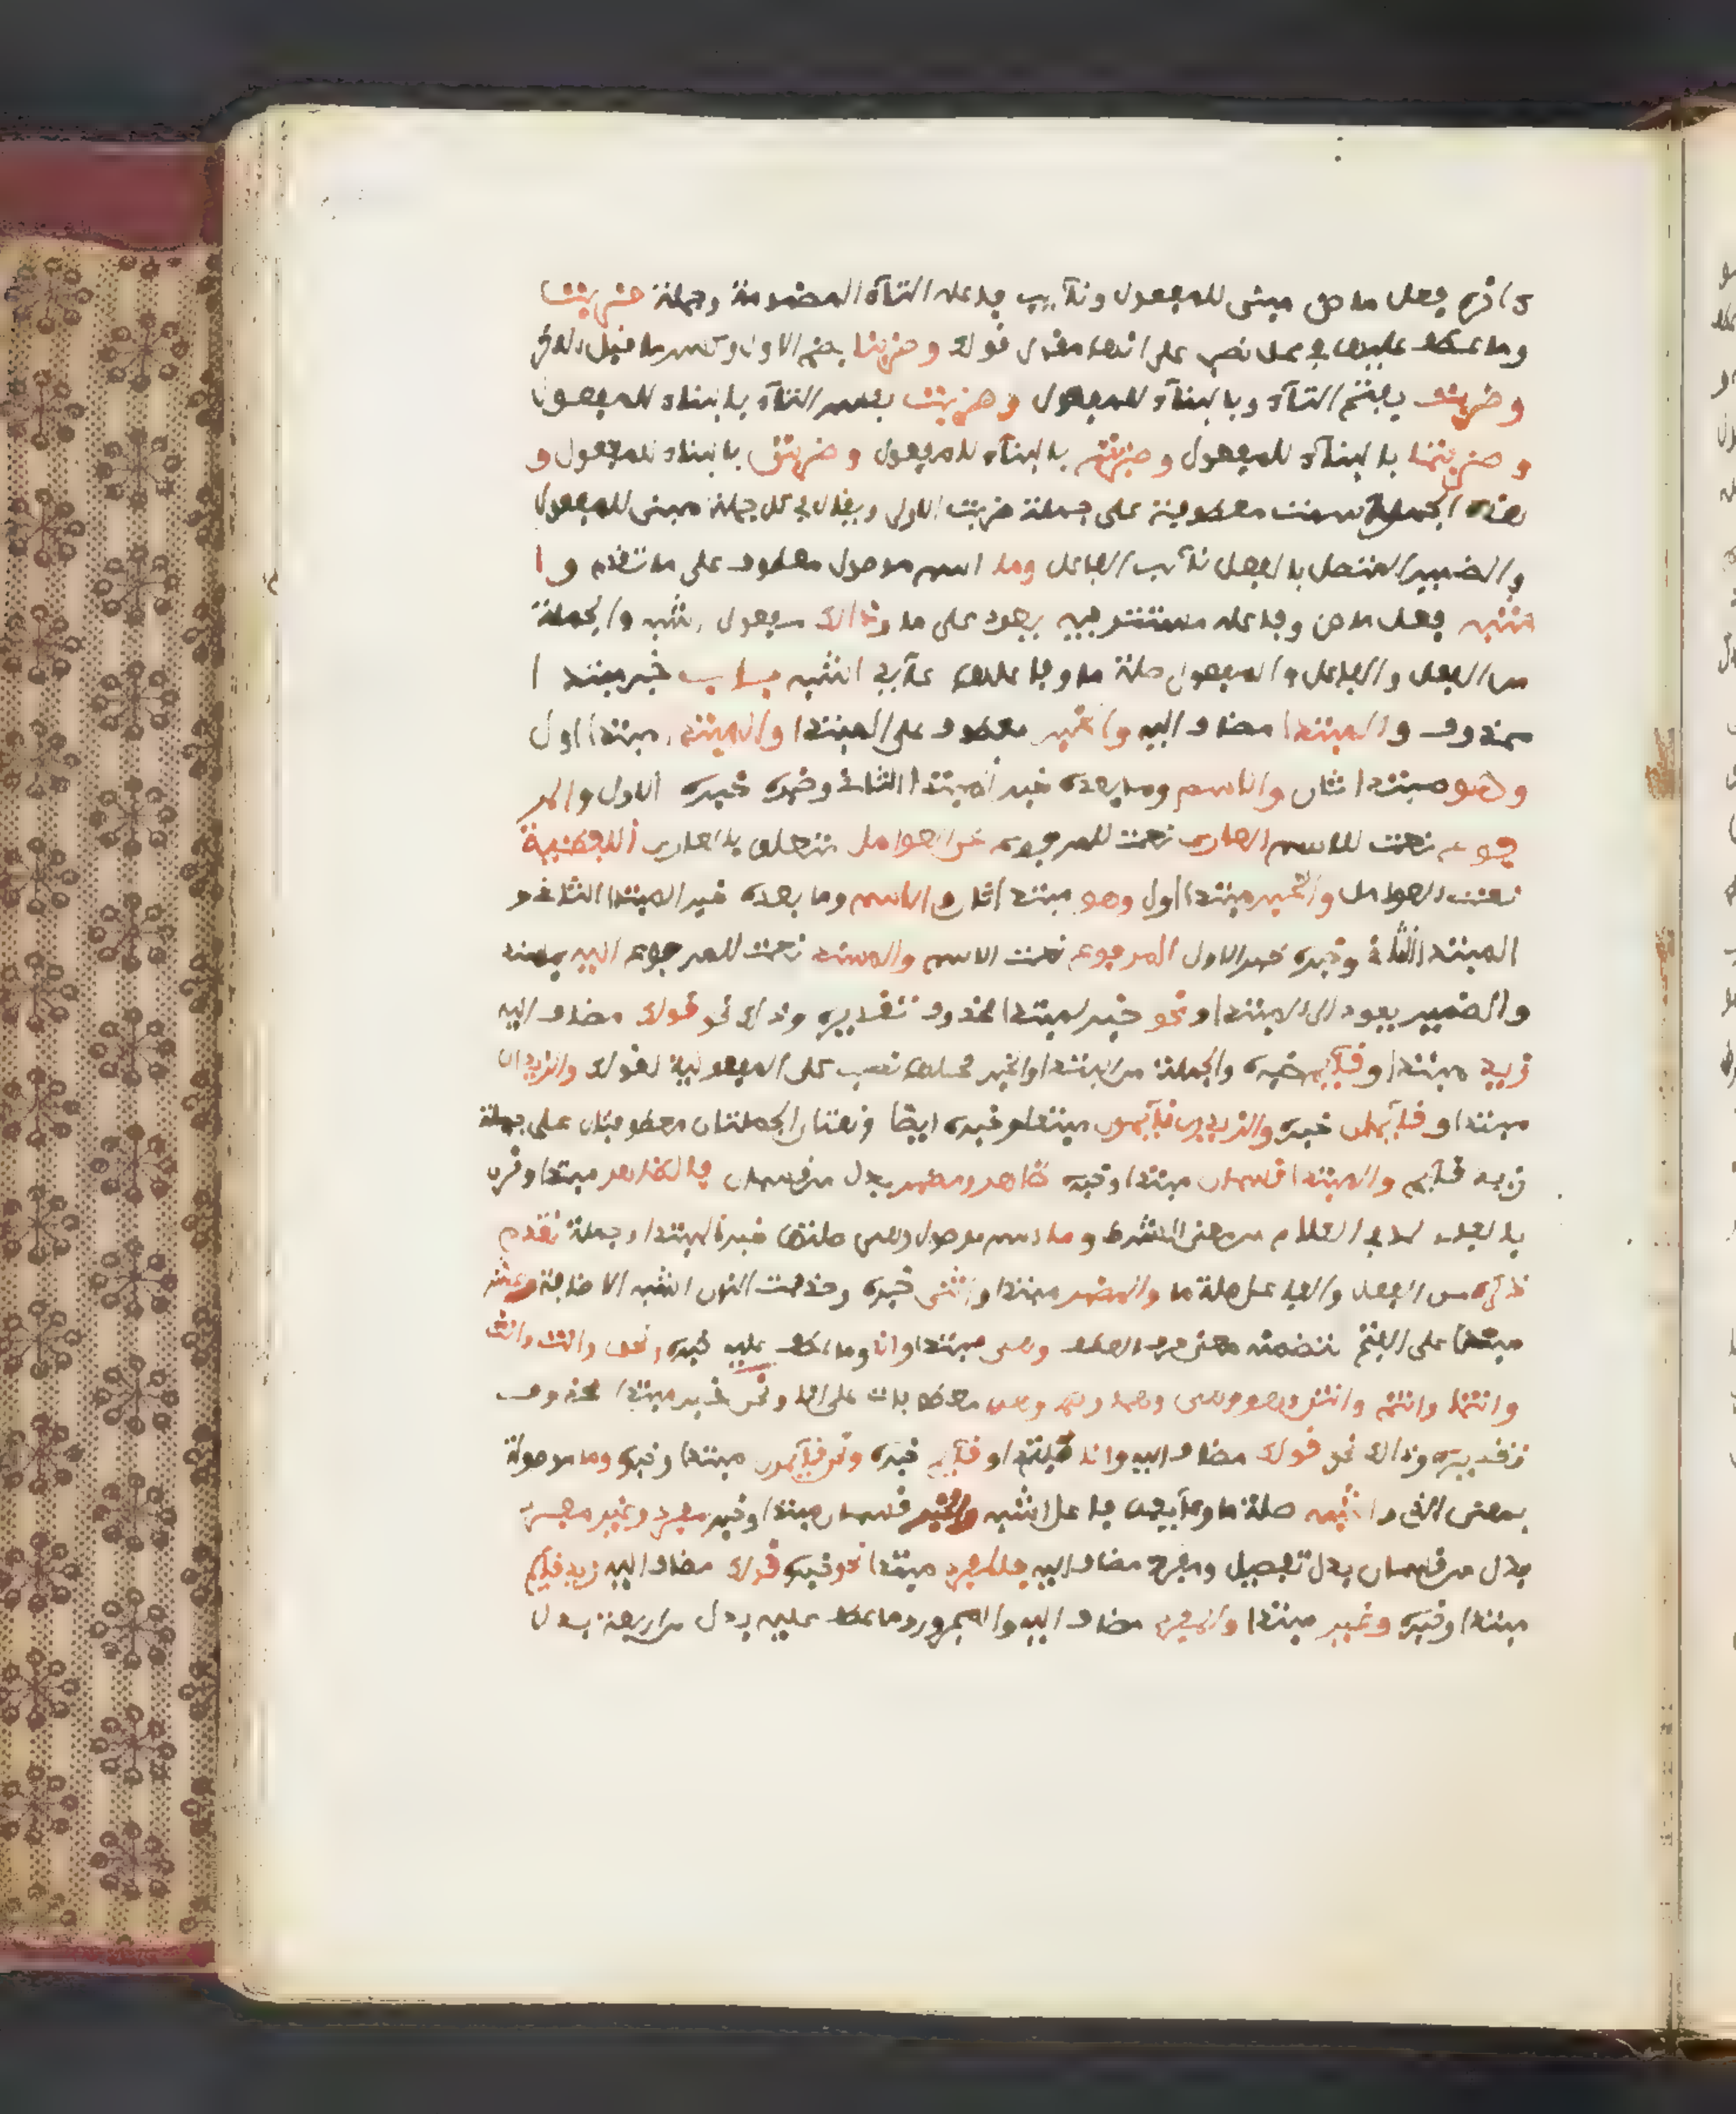 فعل ماض مبنى للمفعول ونآيب فاعله التآء المضمومة وجملة ضربت
وما عطف عليها في محل نصب على انها مقول قولك وضربنا بضم الاول وكسر ما قبل الاخر
وضربت بفتح التآء وبالبنآء للمفعول وضربت بكسر التآء بالبناء للمفعول
وضربتما بالبنآء للمفعول وضربتم بالبنآء للمفعول وضربتن بالبناء للمفعول و
هذه الجملة معطوفة على جملة ضربت الاولى ويقال في كل جملة مبنى للمفعول
والضمير المتصل بالفعل نآيب الفاعل وما اسم موصول معطوف على ما تقدم و ا
شبه فعل ماض وفاعله مستتر فيه يعود على ما وذالك مفعول اشبه والجملة
من الفعل والفاعل والمفعول صلة ما وفاعلها عآيد اشبه باب خبر مبتدا
محذوف والمبتدا مضاف اليه والخبر معطوف على المبتدا والمبتدا مبتدا اول
وهو مبتدا ثان والاسم وما بعده خبر المبتدا الثانى وخبره خبر الاول والمر
فوع نعت للاسم العارى نعت للمرفوع عن العوامل متعلق بالعارى اللفظية
نعت العوامل والخبر مبتدا اول وهو مبتدا ثان والاسم وما بعده خبر المبتدا الثانى و
المبتدا الثانى وخبره خبر الاول المرفوع نعت الاسم والمسند نعت للمرفوع اليه بمسند
والضمير يعود الى المبتدا ونحو خبر لمبتدا محذوف تقديره وذالك نحو قولك مضاف اليه
زيد مبتدا وقآيم خبره والجملة من المبتدا والخبر محلها نصب على المفعولية لقولك والزيدان
مبتدا وقآيمان خبره والزيدون قآيمون مبتدا وخبره ايضا وهتان الجملتان معطوفتان على جملة
زيد قآيم والمبتدا قسمان مبتدا وخبره ظاهر ومضمر بدل من قسمان فالظاهر مبتدا وقرن
بالفاء لما في الكلام من معنى الشرط وما اسم موصول وهى صلتها خبر المبتدا وجملة تقدم
ذكره من الفعل والفاعل صلة ما والمضمر مبتدا واثنى خبره وحذفت النون لشبه الاضافة وعشر
مبنى على الفتح لتضمنه معنى حرف العطف وهى مبتدا وانا وما عطف عليه خبره ونحن وانت وانت
وانتما وانتم وانتن وهو وهى وهما وهم وهن معطوفات على انا ونحو خبر مبتدا محذوف
تقديره وذالك نحو قولك مضاف اليه وانا مبتدا وقآيم خبره ونحن قآيمون مبتدا وخبره وما موصولة
بمعنى الذى واشبه صلة ما فاعل اشبه والخبر قسمان مبتدا وخبر مفرد وغير مفرد
بدل من قسمان بدل تفصيل ومفرد مضاف اليه فالمفرد مبتدا نحو خبره قولك مضاف اليه زيد قآيم
مبتدا وخبره وغير مبتدا والمفرد مضاف اليه والمجرور وما عطف عليه بدل من اربعة بدل